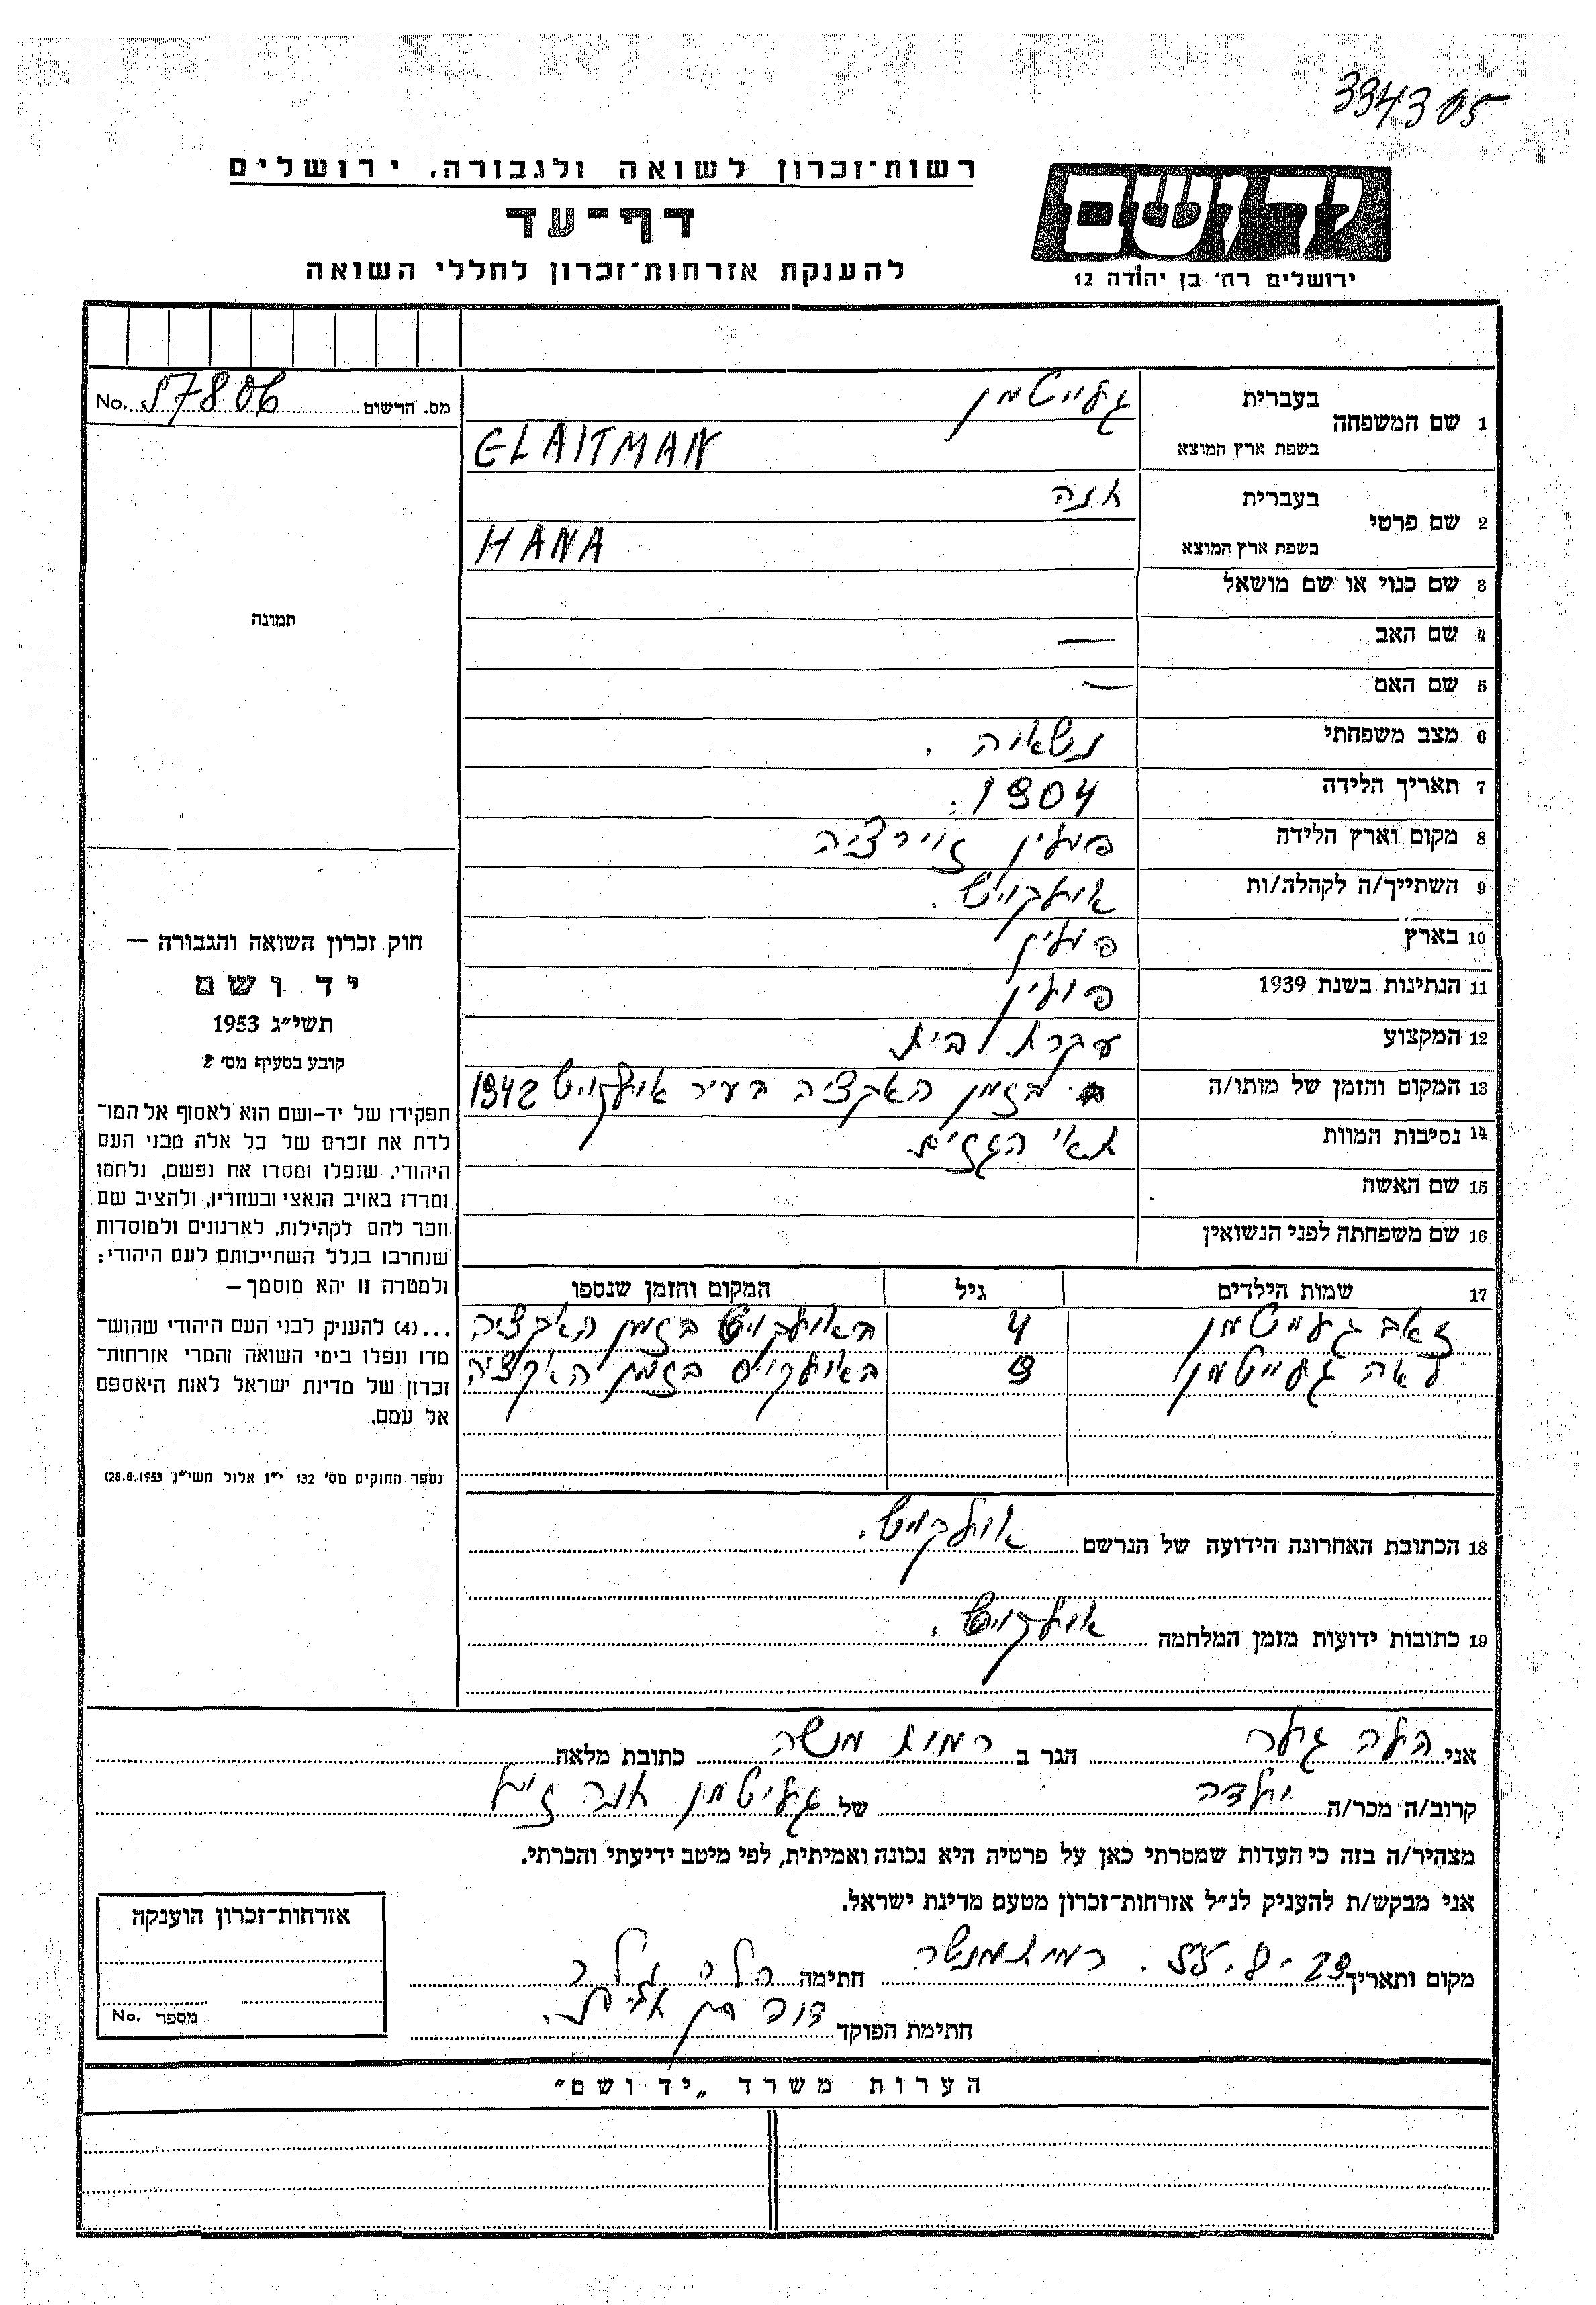 334305
רשות־זכרון לשואה ולגבורה, ירושלים
דף־עד
להענקת אזרחות־זכרון לחללי השואה
יד ושם
ירושלים רח׳ בן יהודה 12
מס. הרשום No. 57806
1 שם המשפחה
בעברית גלייטמן
בשפת ארץ המוצא GLAITMAN
2 שם פרטי
בעברית אנה
בשפת ארץ המוצא HANA
3 שם כנוי או שם מושאל
4 שם האב —
5 שם האם —
6 מצב משפחתי נשאוה .
7 תאריך הלידה 1904.
8 מקום וארץ הלידה פולין זוירציה
9 השתייך/ה לקהלה/ות אולקויש.
10 בארץ פולין
11 הנתינות בשנת 1939 פולין
12 המקצוע עקרת לבית
13 המקום והזמן של מותו/ה בזמן האקציה בעיר אולקויש 1942
14 נסיבות המוות תאי הגזים
15 שם האשה
16 שם משפחתה לפני הנשואין
17 שמות הילדים גיל המקום והזמן שנספו
זאב גלייטמן 4 באולקויש בזמן האקציה
לאה גלייטמן 9 באולקויש בזמן האקציה
18 הכתובת האחרונה הידועה של הנרשם אולקויש.
19 כתובות ידועות מזמן המלחמה אולקויש.
תמונה
חוק זכרון השואה והגבורה —
יד ושם
תשי״ג 1953
קובע בסעיף מס׳ 2
תפקידו של יד-ושם הוא לאסוף אל המו־
לדת את זכרם של כל אלה מבני העם
היהודי, שנפלו ומסרו את נפשם, נלחמו
ומרדו באויב הנאצי ובעוזריו, ולהציב שם
וזכר להם לקהילות, לארגונים ולמוסדות
שנחרבו בגלל השתייכותם לעם היהודי;
ולמטרה זו יהא מוסמך—
...(4) להעניק לבני העם היהודי שהוש־
מדו ונפלו בימי השואה והמרי אזרחות־
זכרון של מדינת ישראל לאות היאספם
אל עמם.
(ספר החוקים מס׳ 132 י״ז אלול תשי״ג 28.8.1953)
אני הלה גילר הגר ב רמות מנשה כתובת מלאה
קרוב/ה מכר/ה ילדה של גלייטמן אנה ז״ל
מצהיר/ה בזה כי העדות שמסרתי כאן על פרטיה היא נכונה ואמיתית, לפי מיטב ידיעתי והכרתי.
אני מבקש/ת להעניק לנ״ל אזרחות־זכרון מטעם מדינת ישראל.
מקום ותאריך 29.8.55. רמות מנשה חתימה הלה גילר
חתימת הפוקד
אזרחות־זכרון הוענקה
מספר No.
הערות משרד „יד ושם״